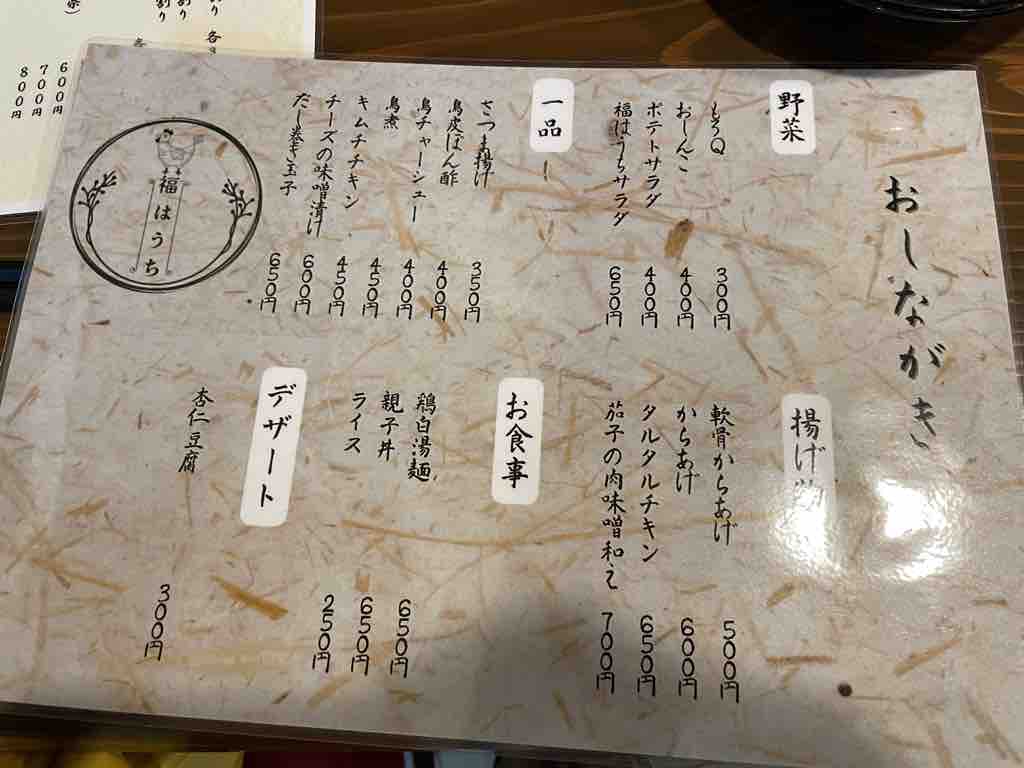 おしながき
野菜
もろQ 300円
おしんこ 400円
ポテトサラダ 400円
福はうちサラダ 650円
一品
さつま揚げ 350円
鳥皮ぽん酢 400円
鳥チャーシュー 400円
鳥煮 450円
キムチチキン 450円
チーズの味噌漬け 600円
だし巻き玉子 650円
揚げ物
軟骨からあげ 500円
からあげ 600円
タルタルチキン 650円
茄子の肉味噌和え 700円
お食事
鶏白湯麺 650円
親子丼 650円
ライス 250円
デザート
杏仁豆腐 300円
福はうち
600円
700円
800円